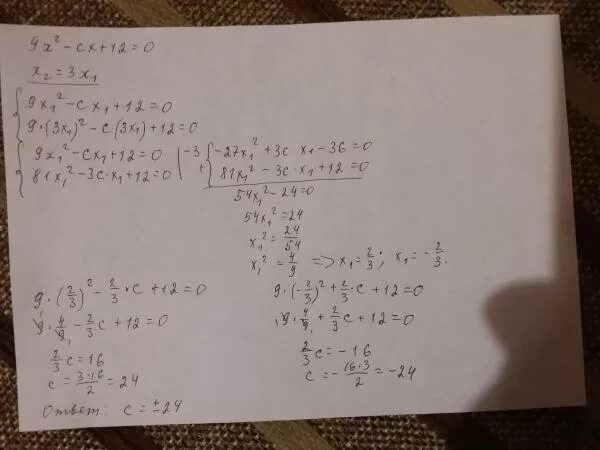 9x² - cx + 12 = 0
x₂ = 3x₁
9x₁² - cx₁ + 12 = 0
9·(3x₁)² - c·(3x₁) + 12 = 0
9x₁² - cx₁ + 12 = 0 | -3
81x₁² - 3c·x₁ + 12 = 0
-27x₁² + 3c·x₁ - 36 = 0
+ 81x₁² - 3c·x₁ + 12 = 0
54x₁² - 24 = 0
54x₁² = 24
x₁² = 24/54
x₁² = 4/9 => x₁ = 2/3; x₁ = -2/3.
9·(2/3)² - 2/3·c + 12 = 0
9·4/9 - 2/3c + 12 = 0
2/3c = 16
c = 3·16/2 = 24
9·(-2/3)² + 2/3·c + 12 = 0
9·4/9 + 2/3c + 12 = 0
2/3c = -16
c = -16·3/2 = -24
Ответ: c = ±24